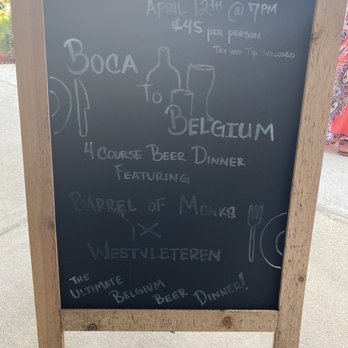 April 12th @ 7pm
$45 per person
Tax and Tip Included
Boca
To
Belgium
4 Course Beer Dinner
Featuring
Barrel of Monks
X
Westvleteren
The
Ultimate
Belgium
Beer Dinner!